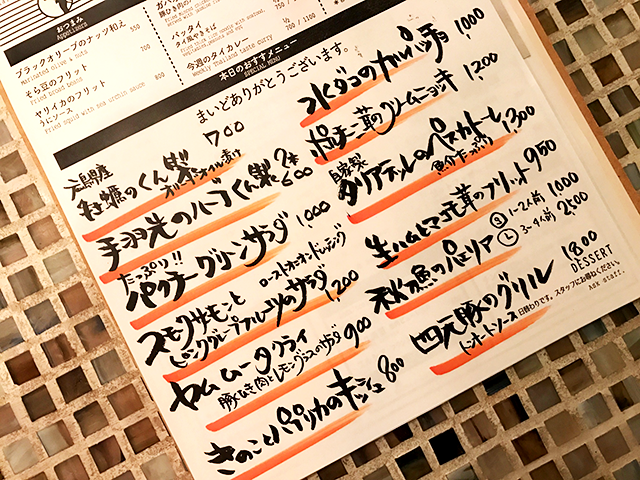 おつまみ
Appetizers
ブラックオリーブのナッツ和え 350
Marinated olive & nuts
そら豆のフリット
Fried broad beans
ヤリイカのフリット
うにソース
Fried squid with sea urchin sauce 800
パッタイ
タイ風やきそば
今週のタイカレー
Weekly Thailand taste curry
本日のおすすめメニュー
SPECIAL MENU
まいどありがとうございます。
広島産 700
牡蠣のくん製
オリーブオイル漬け
手羽先のハーブくん製 2本 600
たっぷり!!
パクチーグリーンサラダ 1,000
ローストオニオンドレッシング
スモークサーモンと
ピンクグレープフルーツのサラダ 1,200
ヤム ムー タクライ
豚ひき肉とレモングラスのサラダ 900
きのことパプリカのキッシュ 800
水ダコのカルパッチョ 1,000
ポルチーニ茸のクリームニョッキ 1,200
自家製
タリアテッレのペスカトーレ 1,300
魚介たっぷり
生ハムとマコモ茸のフリット 950
秋刀魚のパエリア
S 1~2人前 1,000
L 3~4人前 2,500
四元豚のグリル 1,800
トンナートソース
DESSERT
日替わりです。スタッフにお尋ねください。
Ask staff.